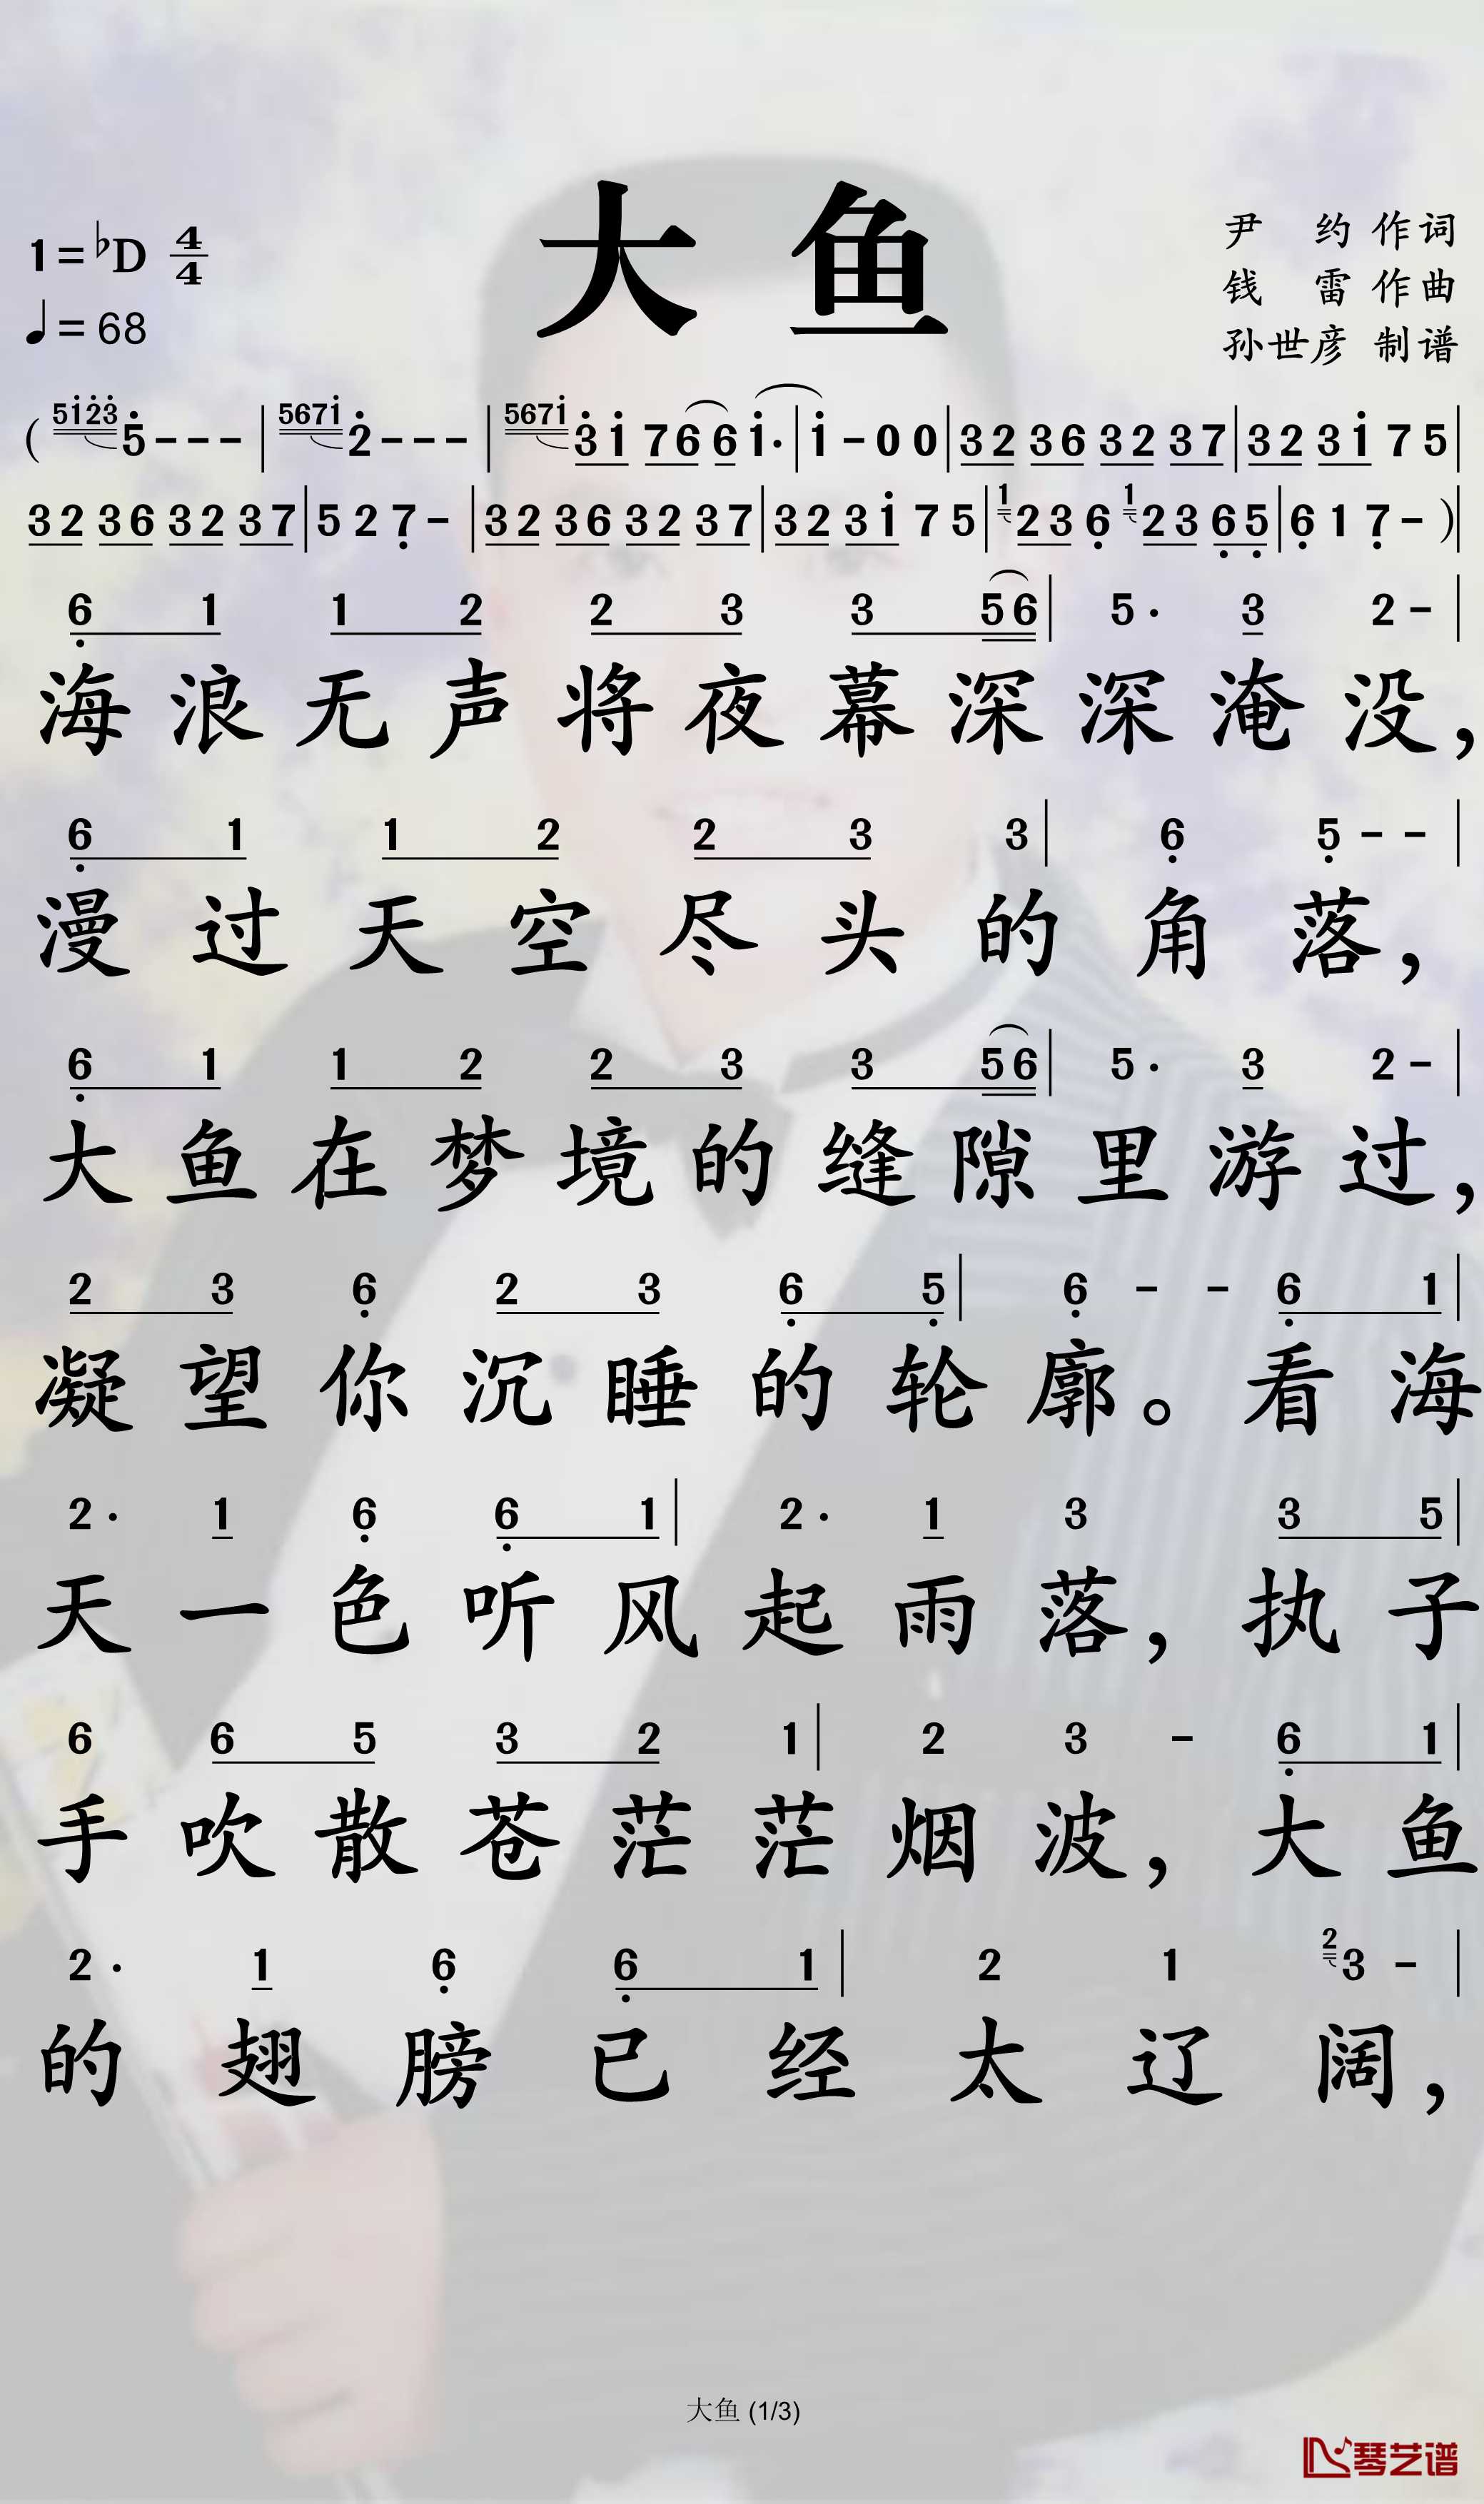 大鱼
1=♭D 4/4
♩=68
尹 约 作词
钱 雷 作曲
孙世彦 制谱
( 5i̇2̇3̇ 5̇--- | 567i̇ 2̇--- | 567i̇ 3̇ i̇ 7 6 6 i̇· | i̇ - 0 0 | 3 2 3 6 3 2 3 7 | 3 2 3 i̇ 7 5 |
3 2 3 6 3 2 3 7 | 5 2 7̣ - | 3 2 3 6 3 2 3 7 | 3 2 3 i̇ 7 5 | 1 2 3 6̣ 1 2 3 6̣ 5̣ | 6̣ 1 7̣ - ) |
6̣ 1 1 2 2 3 3 5 6 | 5· 3 2 - |
海浪无声将夜幕深深淹没，
6̣ 1 1 2 2 3 3 | 6̣ 5̣ - - |
漫过天空尽头的角落，
6̣ 1 1 2 2 3 3 5 6 | 5· 3 2 - |
大鱼在梦境的缝隙里游过，
2 3 6̣ 2 3 6̣ 5̣ | 6̣ - - 6̣ 1 |
凝望你沉睡的轮廓。看海
2· 1 6̣ 6̣ 1 | 2· 1 3 3 5 |
天一色听风起雨落，执子
6 6 5 3 2 1 | 2 3 - 6̣ 1 |
手吹散苍茫茫烟波，大鱼
2· 1 6̣ 6̣ 1 | 2 1 2 3 - |
的翅膀已经太辽阔，
大鱼 (1/3)
琴艺谱